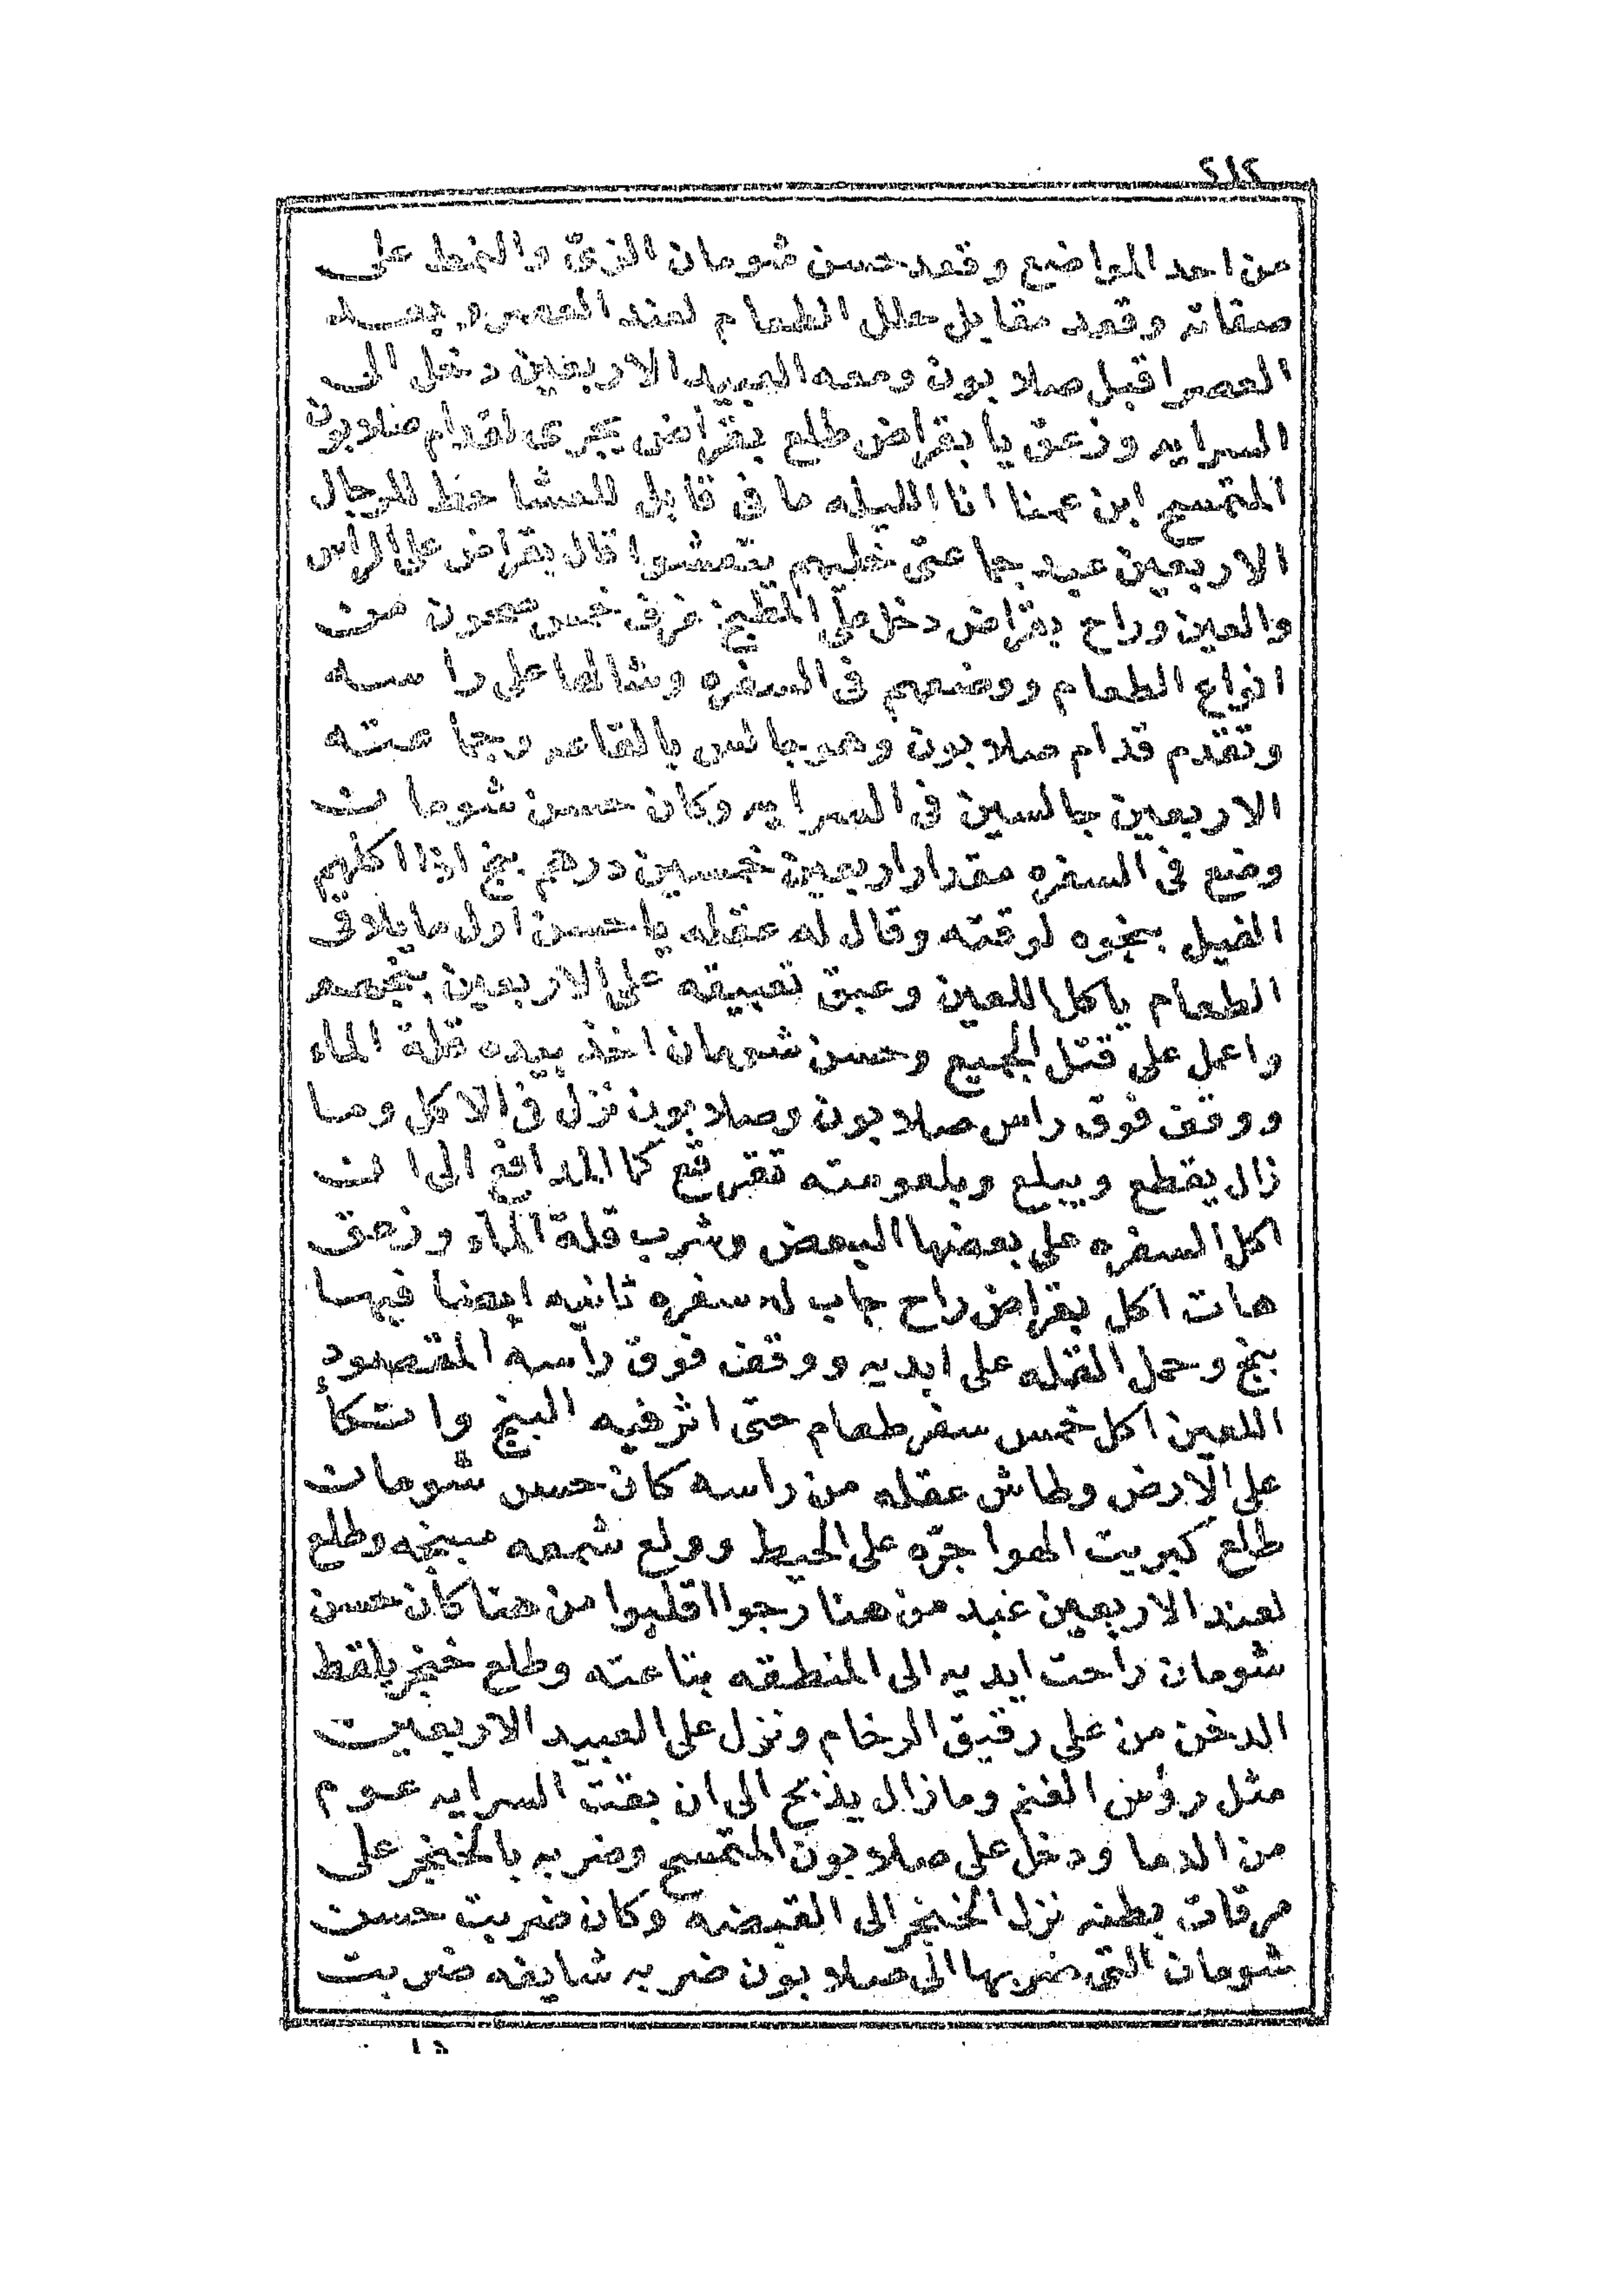 ٤١٤
من احد المواضيع وقعد حسن شومان الزق والنمط على
صفاته وقعد مقابل حلل الطعام لعند العصر وبعد
العصر اقبل صلابون ومعه العبيد الاربعين دخل الى
السرايه وزعق يا بقراض طلع بقراض يجرى لقدام صلابون
المتمسح ابن عمنا انا الليله ما فى قابل للعشا حط للرجال
الاربعين عبد جماعتى خليهم يتعشوا قال بقراض على الراس
والعين وراح بقراض دخل على المطبخ غرف خمس صحون من
انواع الطعام ووضعهم فى السفره وشالها على راسه
وتقدم قدام صلابون وهو جالس بالقاعه وجماعته
الاربعين جالسين فى السرايه وكان حسن شومان
وضع فى السفره مقدار اربعين خمسين درهم بنج اذا اكلهم
الفيل بنجوه لوقته وقال له عقله يا حسن اول ما يلاقى
الطعام ياكل اللعين وعبق تعبيقه على الاربعين بنجهم
واعمل على قتل الجميع وحسن شومان اخذ بيده قلة الماء
ووقف فوق راس صلابون وصلابون نزل فى الاكل وما
زال يقطع ويبلع وبلعومته تقرقع كما المدافع الى ان
اكل السفره على بعضها البعض وشرب قلة الماء وزعق
هات اكل بقراض راح جاب له سفره ثانيه ايضا فيها
بنج وحمل القله على ايديه ووقف فوق راسه المقصود
اللعين اكل خمس سفر طعام حتى اثر فيه البنج واتكأ
على الارض وطاش عقله من راسه كان حسن شومان
طلع كبريت الهوا جرّه على الحيط وولع شمعه مبنجه وطلع
لعند الاربعين عبد من هنا رجوا اقلبوا من هنا كان حسن
شومان راحت ايديه الى المنطقه بتاعته وطلع خنجر يلقط
الدخن من على رقيق الرخام ونزل على العبيد الاربعين
مثل رؤس الغنم وما زال يذبح الى ان بقت السرايه عوم
من الدما ودخل على صلابون المتمسح وضربه بالخنجر على
مرقات بطنه نزل الخنجر الى القبضه وكان ضربت حسن
شومان التى ضربها الى صلابون ضربه شايفه ضربت